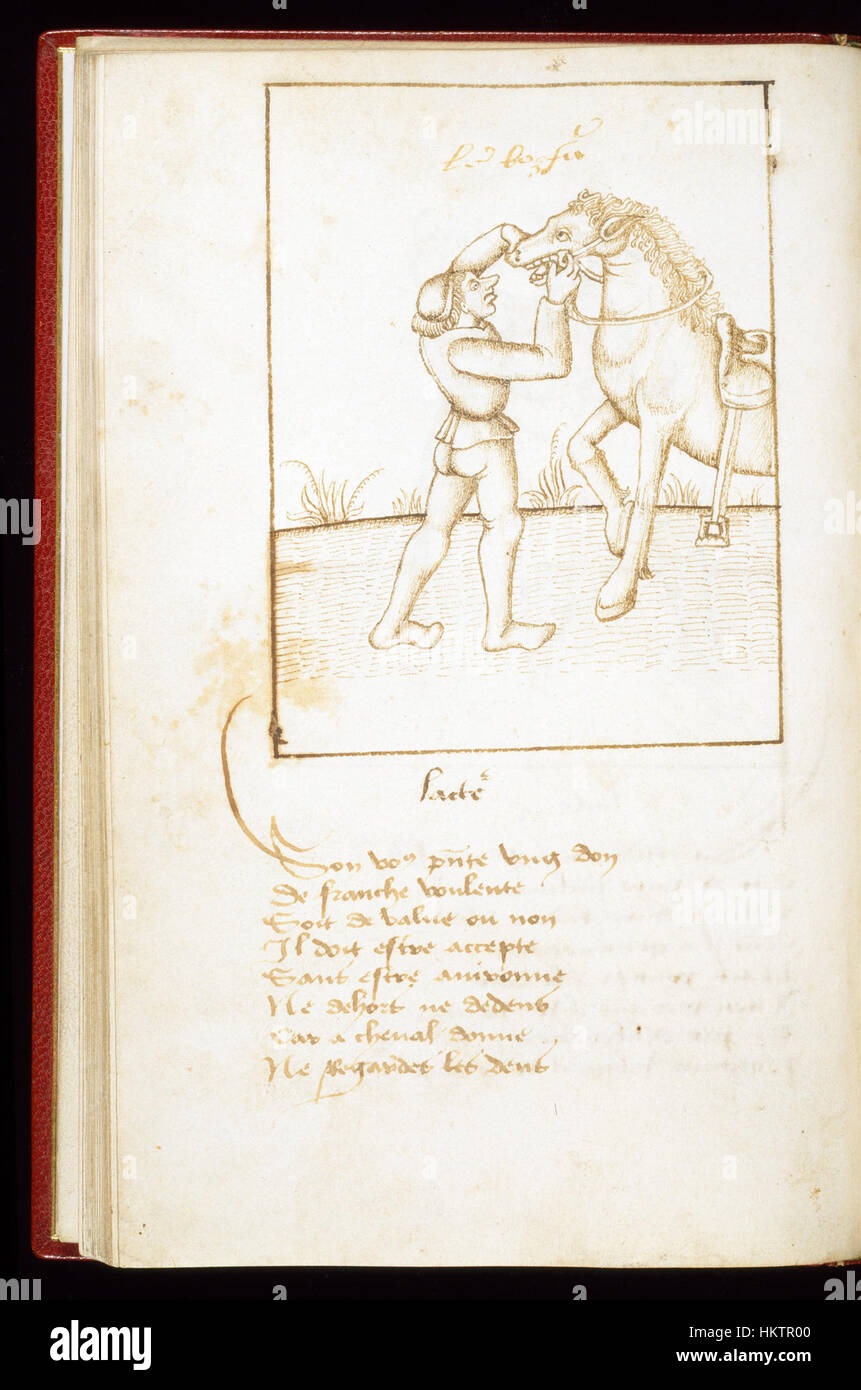 lacte^r
Son vo⁹ pnte ung don
De franche voulente
Soit de value ou non
Il doit estre accepte
Sans estre avironne
Ne dehors ne dedens
Car a cheval donne
Ne Regardes les dens
alamy
alamy
a
a
alamy
Image ID: HKTR00
www.alamy.com